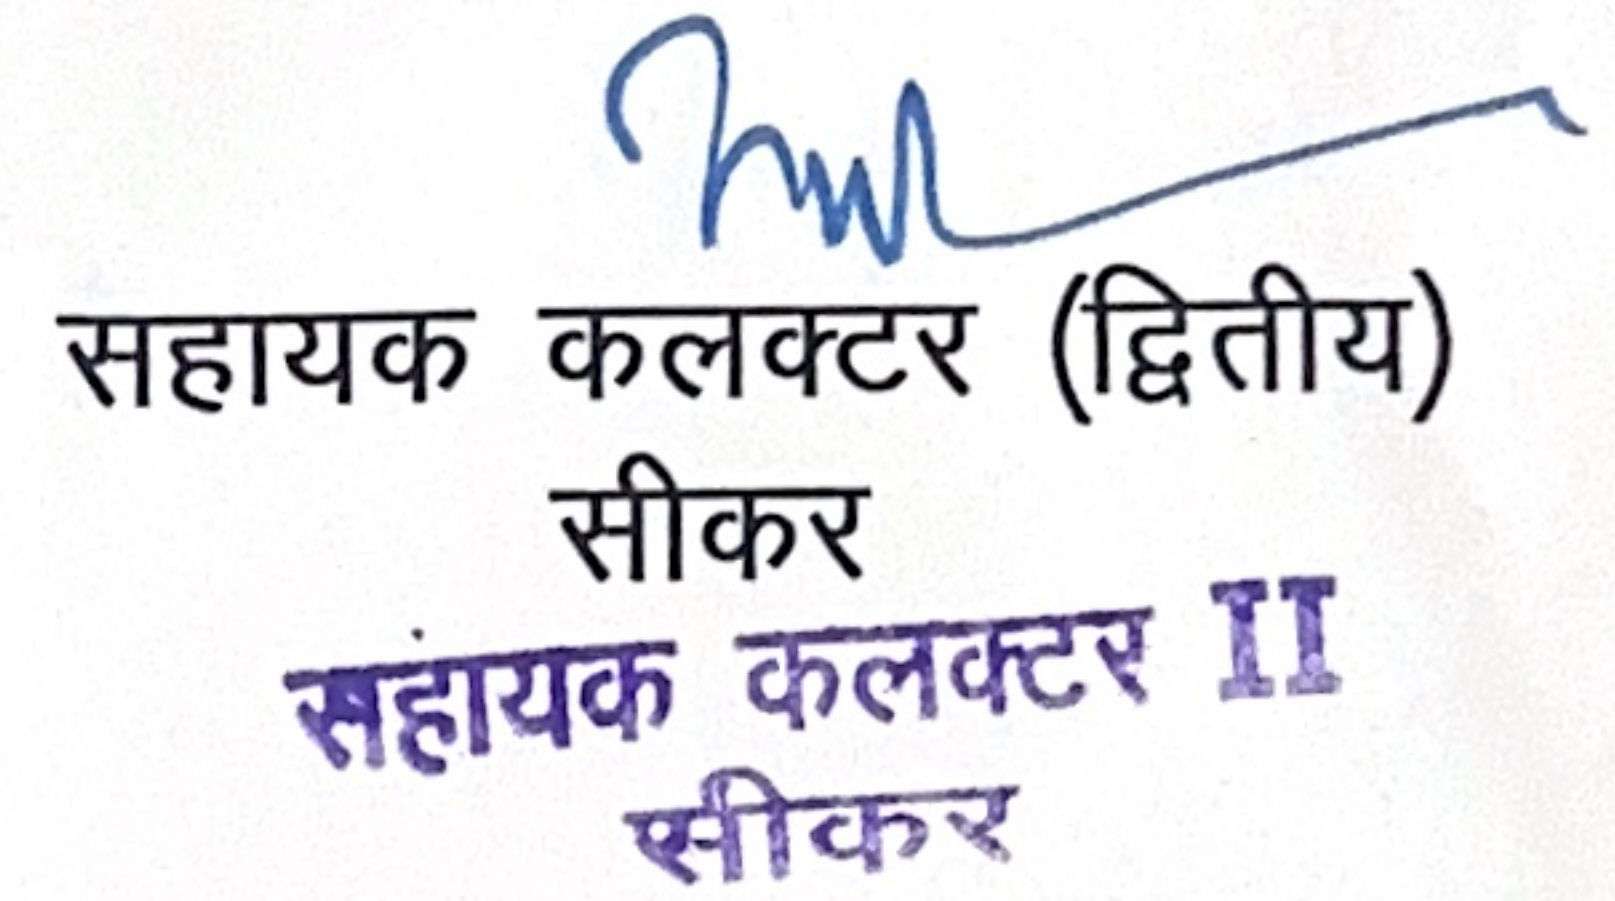 सहायक कलक्टर (द्वितीय)
सीकर
सहायक कलक्टर II
सीकर